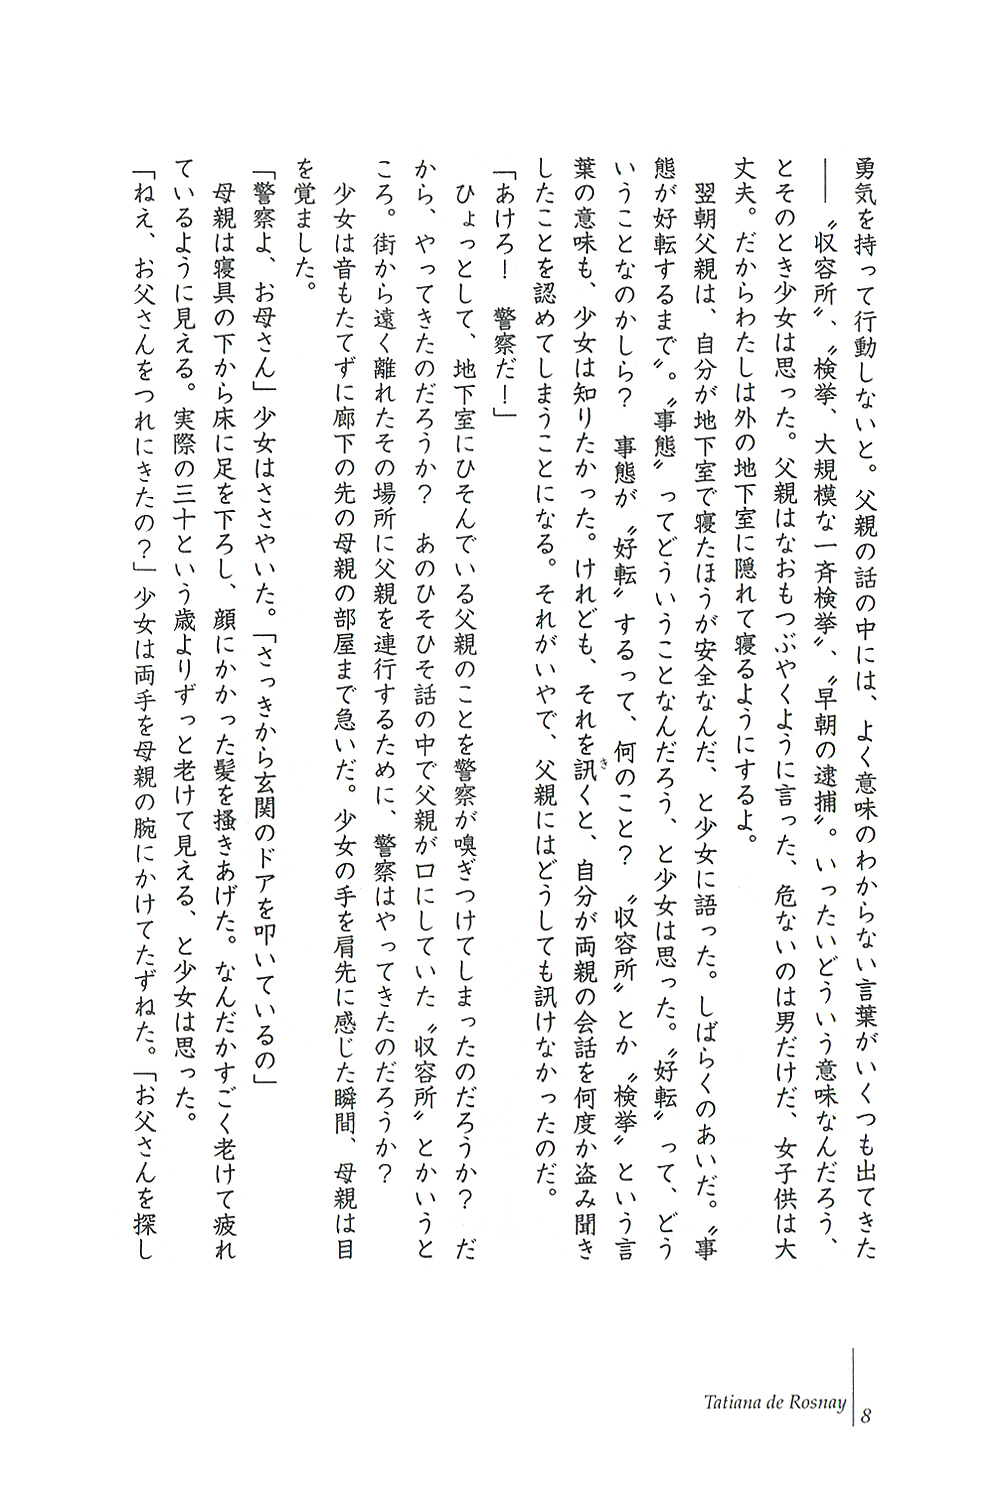 勇気を持って行動しないと。父親の話の中には、よく意味のわからない言葉がいくつも出てきた
――〝収容所〟、〝検挙、大規模な一斉検挙〟、〝早朝の逮捕〟。いったいどういう意味なんだろう、
とそのとき少女は思った。父親はなおもつぶやくように言った、危ないのは男だけだ、女子供は大
丈夫。だからわたしは外の地下室に隠れて寝るようにするよ。
　翌朝父親は、自分が地下室で寝たほうが安全なんだ、と少女に語った。しばらくのあいだ。〝事
態が好転するまで〟。〝事態〟ってどういうことなんだろう、と少女は思った。〝好転〟って、どう
いうことなのかしら？　事態が〝好転〟するって、何のこと？　〝収容所〟とか〝検挙〟という言
葉の意味も、少女は知りたかった。けれども、それを訊くと、自分が両親の会話を何度か盗み聞き
したことを認めてしまうことになる。それがいやで、父親にはどうしても訊けなかったのだ。
「あけろ！　警察だ！」
　ひょっとして、地下室にひそんでいる父親のことを警察が嗅ぎつけてしまったのだろうか？　だ
から、やってきたのだろうか？　あのひそひそ話の中で父親が口にしていた〝収容所〟とかいうと
ころ。街から遠く離れたその場所に父親を連行するために、警察はやってきたのだろうか？
　少女は音もたてずに廊下の先の母親の部屋まで急いだ。少女の手を肩先に感じた瞬間、母親は目
を覚ました。
「警察よ、お母さん」少女はささやいた。「さっきから玄関のドアを叩いているの」
　母親は寝具の下から床に足を下ろし、顔にかかった髪を掻きあげた。なんだかすごく老けて疲れ
ているように見える。実際の三十という歳よりずっと老けて見える、と少女は思った。
「ねえ、お父さんをつれにきたの？」少女は両手を母親の腕にかけてたずねた。「お父さんを探し
Tatiana de Rosnay
8